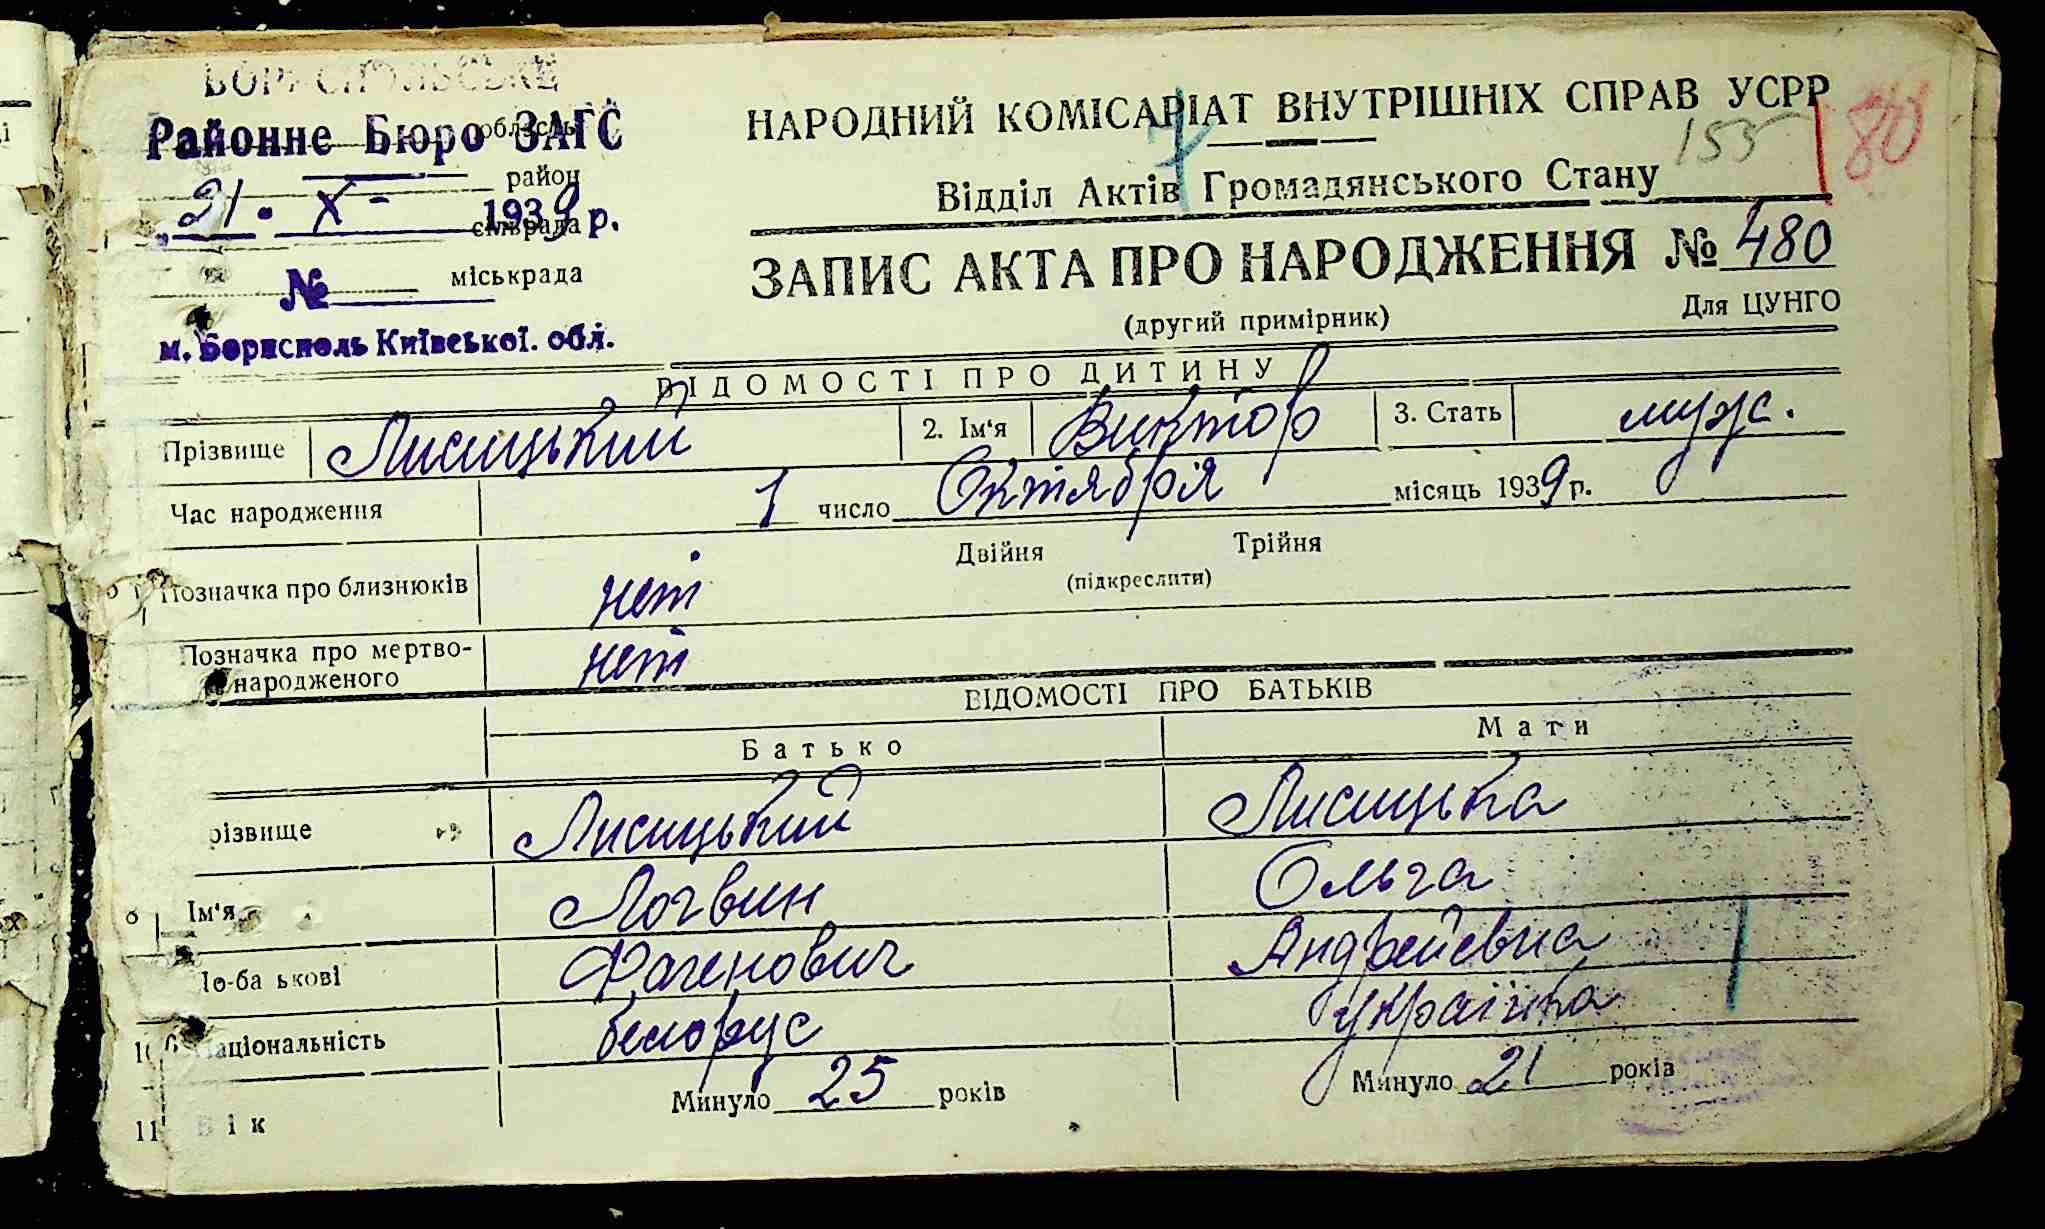 БОРИСПІЛЬСЬКЕ
Районне Бюро ЗАГС
область
район
"31" X - 1939 р.
сільрада
№ міськрада
м. Бориспель Київської. обл.
НАРОДНИЙ КОМІСАРІАТ ВНУТРІШНІХ СПРАВ УСРР
155 80
Відділ Актів Громадянського Стану
ЗАПИС АКТА ПРО НАРОДЖЕННЯ № 480
(другий примірник) Для ЦУНГО
ВІДОМОСТІ ПРО ДИТИНУ
Прізвище Лисицький 2. Ім'я Виктор 3. Стать муж.
Час народження 1 число Октября місяць 1939 р.
Позначка про близнюків нет Двійня Трійня
(підкреслити)
Позначка про мертво-
народженого нет
ВІДОМОСТІ ПРО БАТЬКІВ
Батько Мати
різвище Лисицький Лисицька
Ім'я Логвин Ольга
По-ба ькові Фагенович Андрейевна
10 аціональність белорус українка
11 Вік Минуло 25 років Минуло 21 років